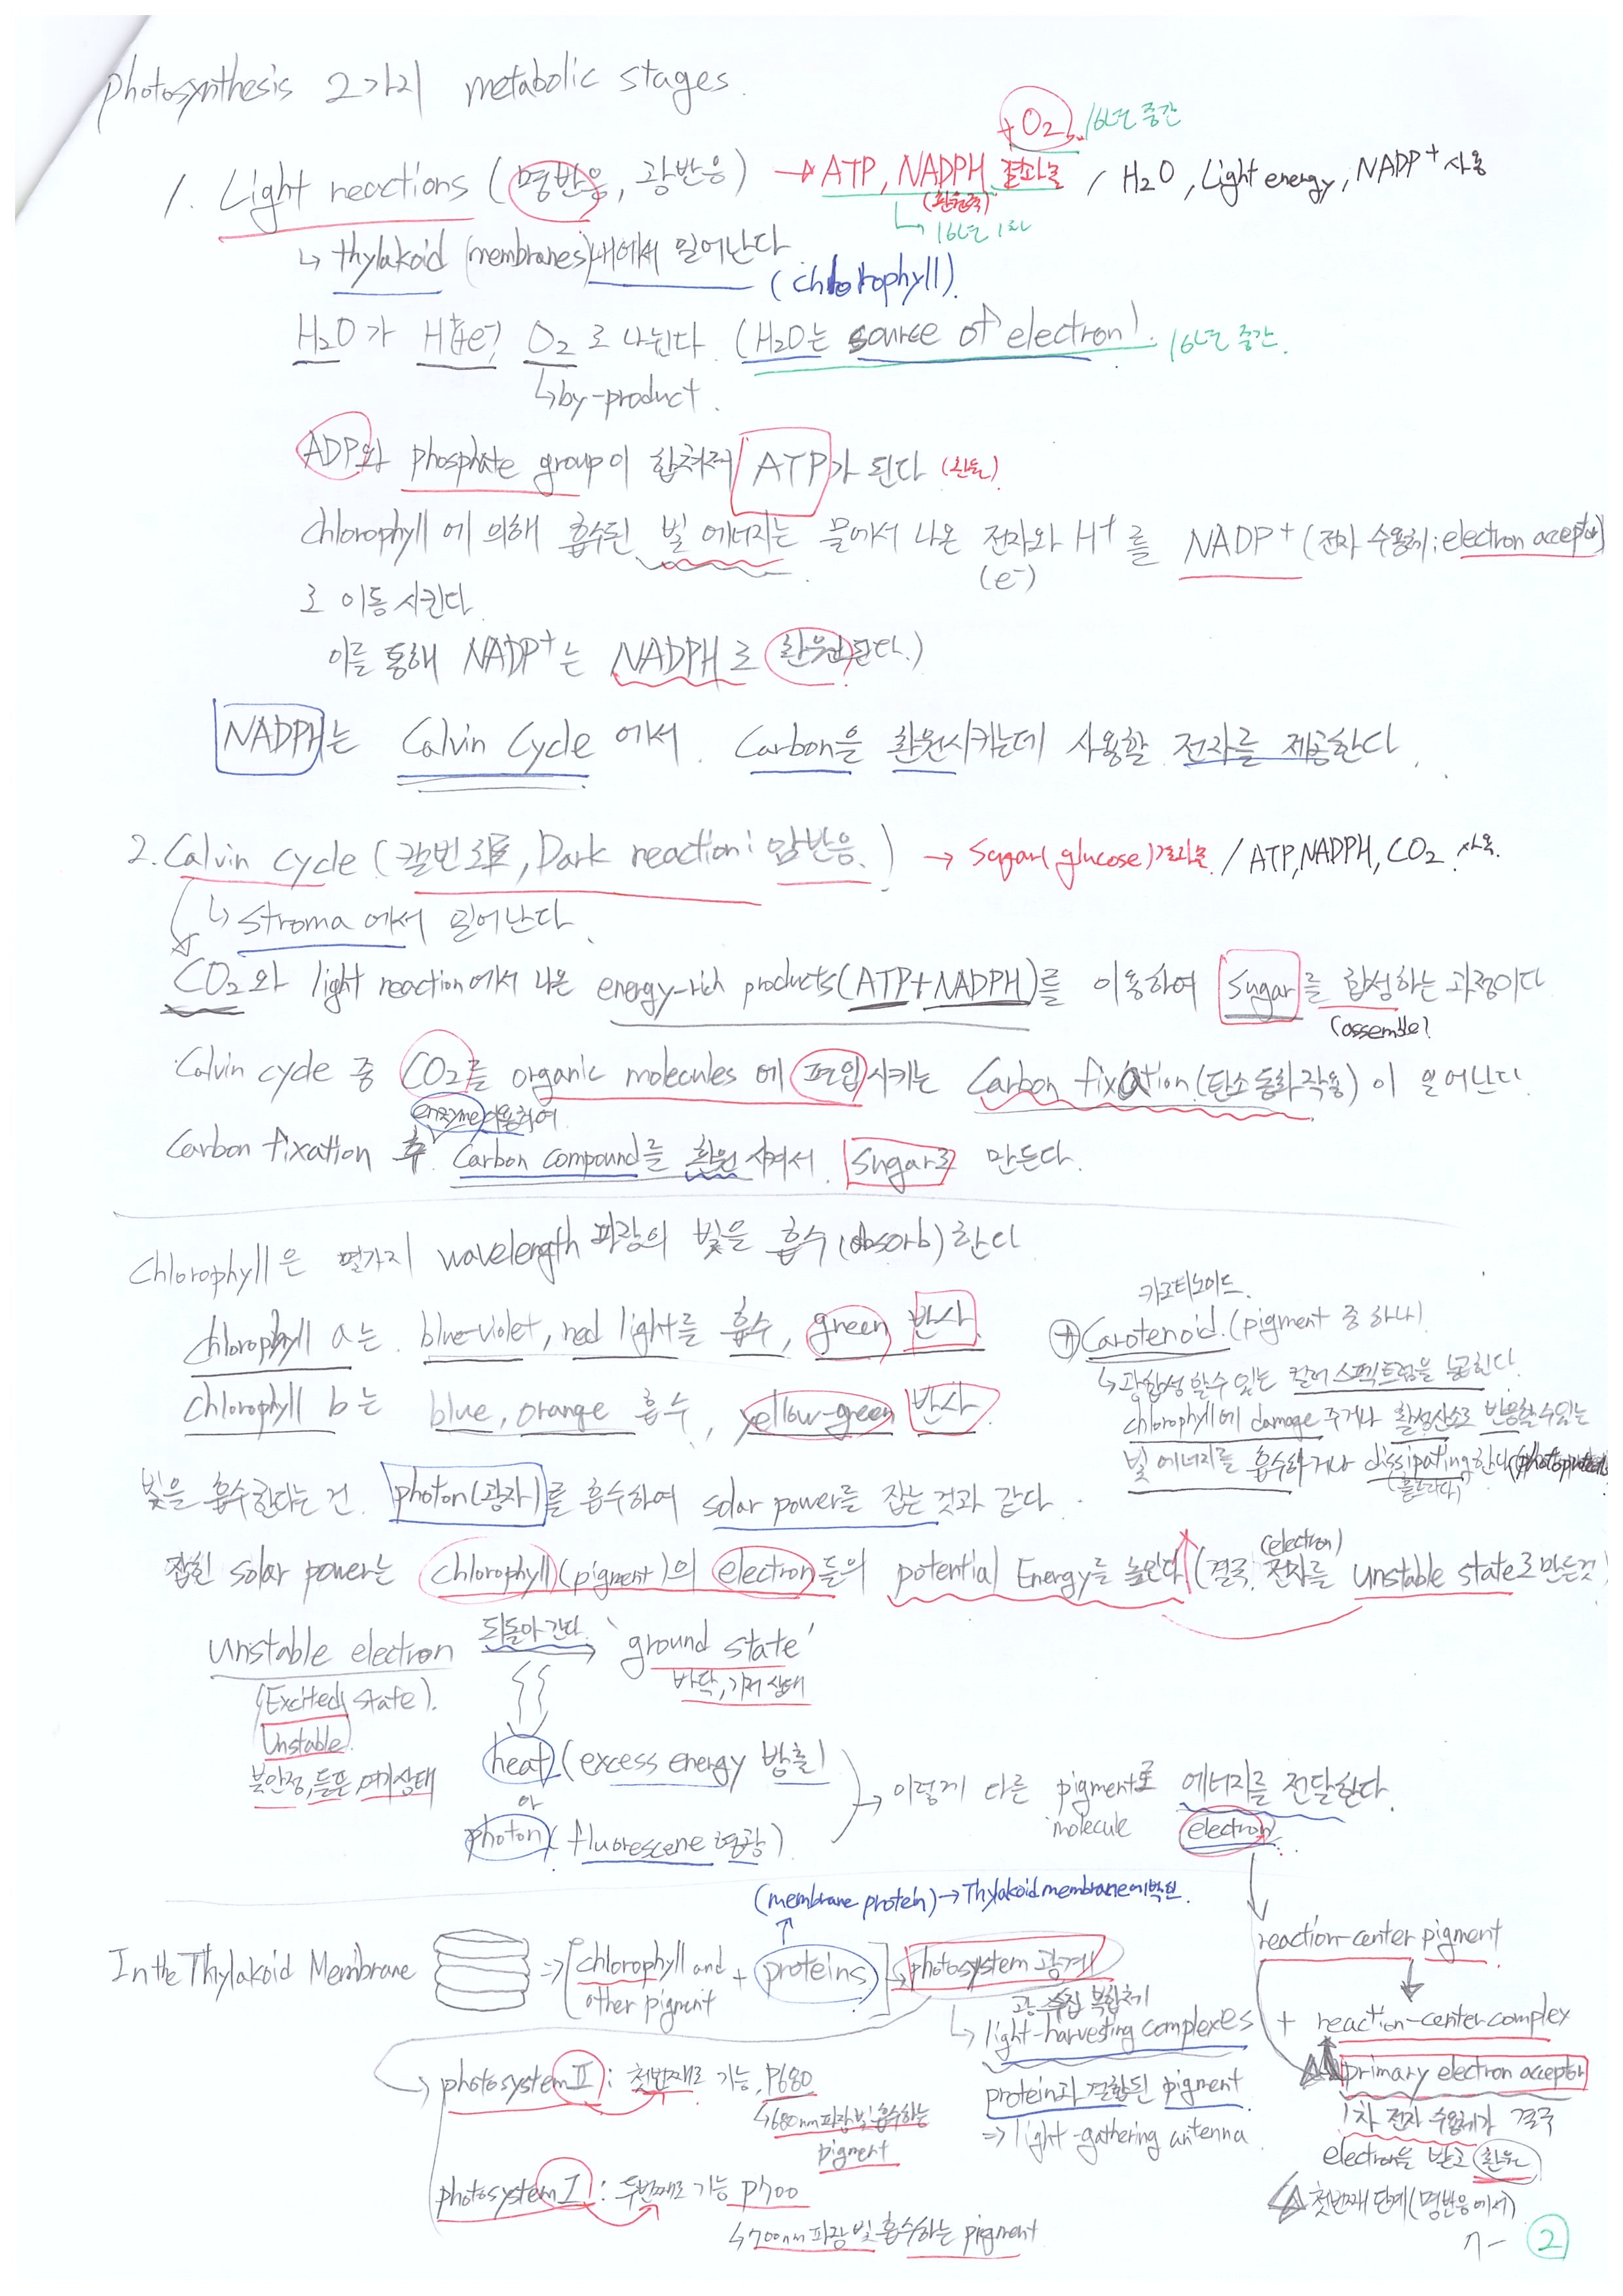 photosynthesis 2가지 metabolic stages.
+ O2 16년 중간
1. Light reactions (명반응, 광반응) → ATP, NADPH 결과물 / H2O, Light energy, NADP+ 사용
(환원력)
↳ 16년 1차
↳ thylakoid (membranes)내에서 일어난다
(chlorophyll).
H2O가 H+, e-, O2로 나뉜다. (H2O는 source of electron). 16년 중간.
↳ by-product.
ADP와 phosphate group이 합쳐져 ATP가 된다 (환원)
chlorophyll에 의해 흡수된 빛 에너지는 물에서 나온 전자와 H+를 NADP+ (전자 수용체: electron acceptor)
(e-)
로 이동시킨다.
이를 통해 NADP+는 NADPH로 환원된다.)
NADPH는 Calvin Cycle에서 Carbon을 환원시키는데 사용할 전자를 제공한다.
2. Calvin cycle (캘빈회로, Dark reaction: 암반응.) → Sugar(glucose)결과물 / ATP, NADPH, CO2 사용.
↳ Stroma에서 일어난다.
CO2와 light reaction에서 나온 energy-rich products(ATP+NADPH)를 이용하여 Sugar를 합성하는 과정이다
(assemble)
Calvin cycle 중 CO2를 organic molecules에 편입시키는 Carbon fixation(탄소동화작용)이 일어난다.
enzyme이용하여
Carbon fixation 후 Carbon compound를 환원시켜서 Sugar로 만든다.
Chlorophyll은 몇가지 wavelength 파장의 빛을 흡수(absorb)한다
chlorophyll a는 blue-violet, red light를 흡수, green 반사
chlorophyll b는 blue, orange 흡수, yellow-green 반사.
카로티노이드.
⊕ Carotenoid. (pigment 중 하나)
↳ 광합성 할수 있는 컬러 스펙트럼을 넓힌다.
chlorophyll에 damage 주거나 활성산소로 반응할 수 있는
빛 에너지를 흡수하거나 dissipating한다 (photoprotection
(흩뜨리다)
빛을 흡수한다는 건 photon(광자)를 흡수하여 solar power를 잡는 것과 같다.
(electron)
잡힌 solar power는 chlorophyll(pigment)의 electron들의 potential Energy를 높인다 (결국 전자를 unstable state로 만든것)
unstable electron 되돌아간다. 'ground state'
바닥, 기저 상태
(Excited state).
Unstable.
불안정, 들뜬, 여기상태
heat (excess energy 방출)
or
photon (fluorescene 형광)
→ 이렇게 다른 pigment로 에너지를 전달한다.
molecule electron
(membrane protein) → Thylakoid membrane에 박힌.
reaction-center pigment
In the Thylakoid Membrane ⇒ [chlorophyll and other pigment + proteins] ↳ photosystem 광계
광 수집 복합체
↳ light-harvesting complexes + reaction-center complex
protein과 결합된 pigment
⇒ light-gathering antenna.
primary electron acceptor
1차 전자 수용체가 결국
electron을 받고 환원
첫번째 단계(명반응에서)
photosystem II: 첫번째로 기능, P680
↳ 680nm 파장 빛 흡수하는
pigment
photosystem I: 두번째로 기능 P700
↳ 700nm 파장 빛 흡수하는 pigment
7- ②